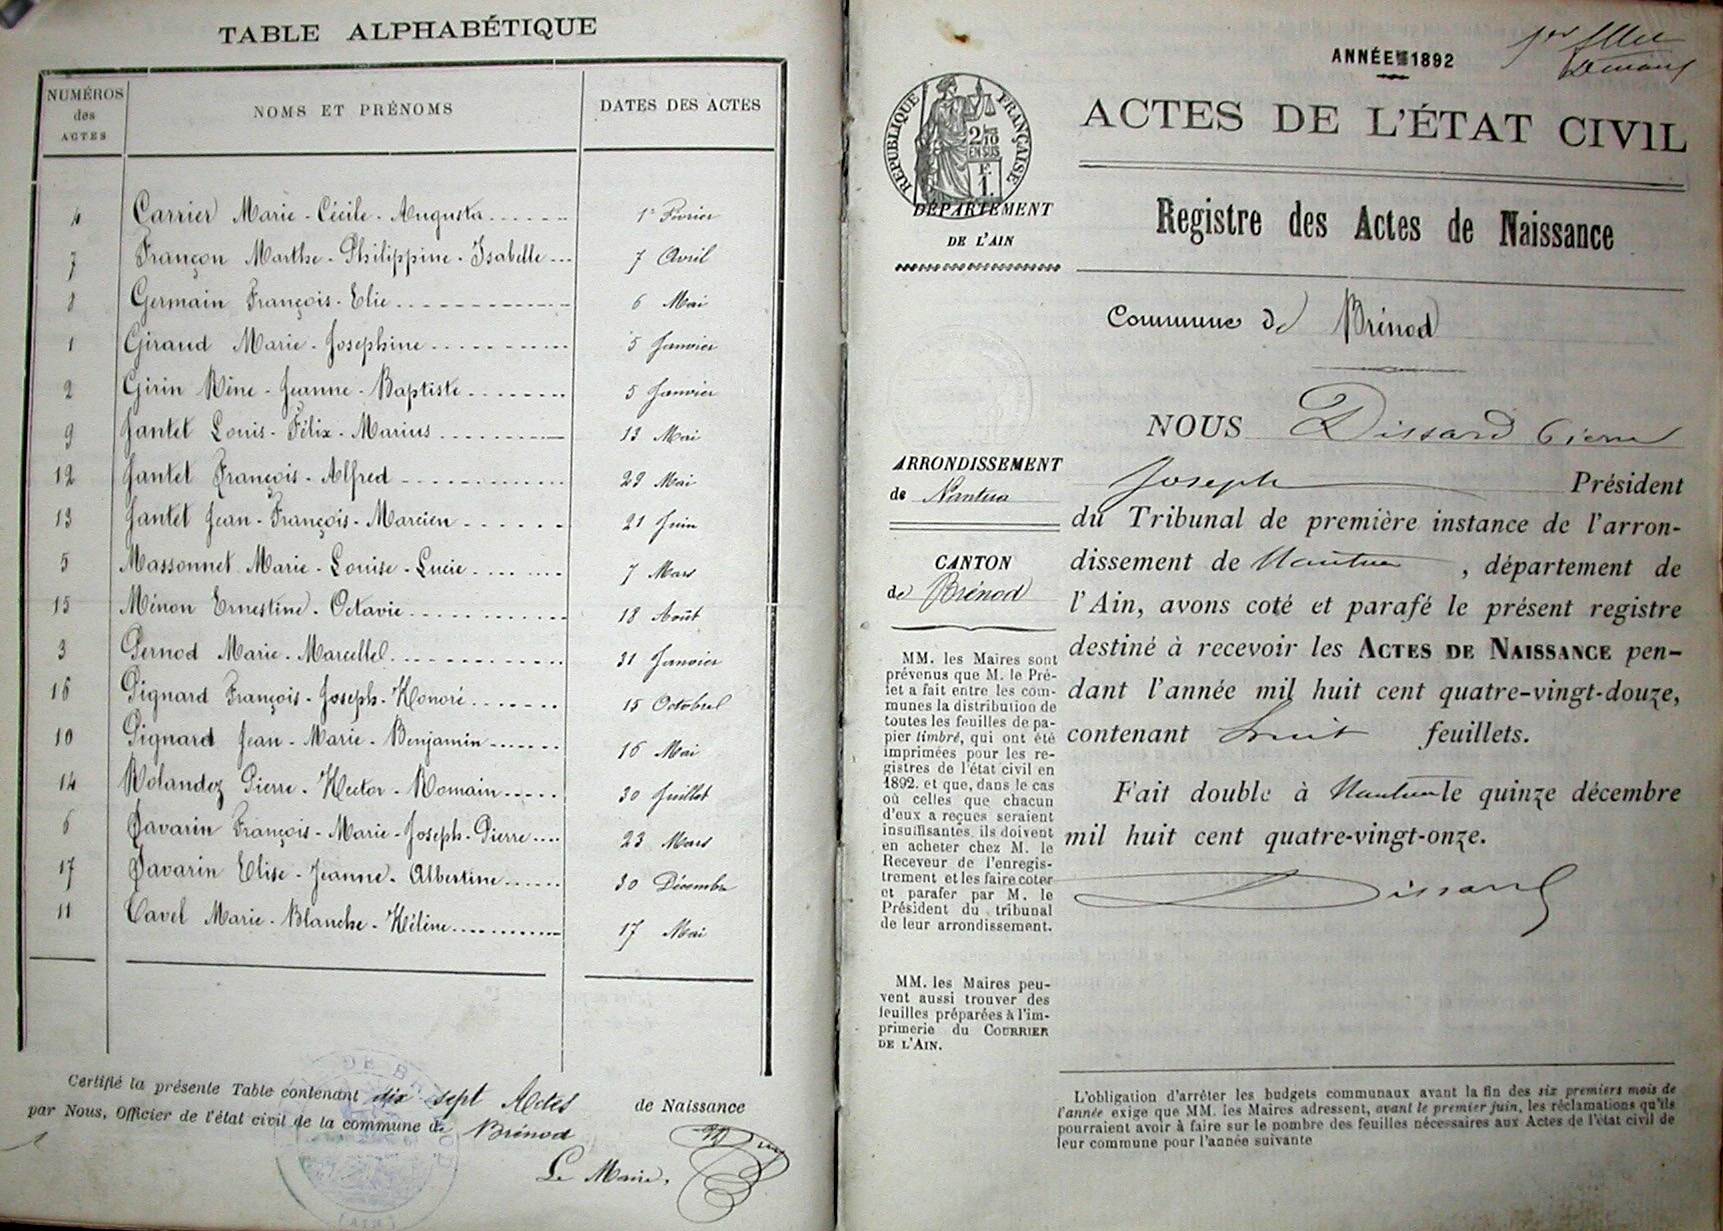 TABLE ALPHABÉTIQUE
NUMÉROS des ACTES
NOMS ET PRÉNOMS
DATES DES ACTES
4 Carrier Marie-Cécile-Augusta 1er Février
7 Françon Marthe-Philippine-Isabelle 7 Avril
8 Germain François-Elie 6 Mai
1 Giraud Marie-Josephine 5 Janvier
2 Girin Rène-Jeanne-Baptiste 5 Janvier
9 Jantet Louis-Félix-Marius 13 Mai
12 Jantet François-Alfred 29 Mai
13 Jantet Jean-François-Marcien 21 Juin
5 Massonnet Marie-Louise-Lucie 7 Mars
15 Ménon Ernestine-Octavie 18 Août
3 Pernod Marie-Marcellel 31 Janvier
16 Pignard François-Joseph-Honoré 15 Octobre
10 Pignard Jean-Marie-Benjamin 16 Mai
14 Rolandez Pierre-Hector-Romain 30 Juillet
6 Savarin François-Marie-Joseph-Pierre 23 Mars
17 Savarin Elise-Jeanne-Albertine 30 Décembre
11 Tavel Marie-Blanche-Hélène 17 Mai
Certifié la présente Table contenant dix sept Actes de Naissance
par Nous, Officier de l'état civil de la commune de Brénod
Le Maire,
ANNÉE 1892
ACTES DE L'ÉTAT CIVIL
RÉPUBLIQUE FRANÇAISE
2/10
EN SUS
F.
1.
DÉPARTEMENT
DE L'AIN
Registre des Actes de Naissance
Commune de Brénod
ARRONDISSEMENT
de Nantua
CANTON
de Brénod
MM. les Maires sont
prévenus que M. le Pré-
fet a fait entre les com-
munes la distribution de
toutes les feuilles de pa-
pier timbré, qui ont été
imprimées pour les re-
gistres de l'état civil en
1892. et que, dans le cas
où celles que chacun
d'eux a reçues seraient
insuffisantes, ils doivent
en acheter chez M. le
Receveur de l'enregis-
trement et les faire coter
et parafer par M. le
Président du tribunal
de leur arrondissement.
MM. les Maires peu-
vent aussi trouver des
feuilles préparées à l'im-
primerie du COURRIER
DE L'AIN.
NOUS Dissard Pierre
Joseph Président
du Tribunal de première instance de l'arron-
dissement de Nantua, département de
l'Ain, avons coté et parafé le présent registre
destiné à recevoir les ACTES DE NAISSANCE pen-
dant l'année mil huit cent quatre-vingt-douze,
contenant huit feuillets.
Fait double à Nantua le quinze décembre
mil huit cent quatre-vingt-onze.
Dissard
L'obligation d'arrêter les budgets communaux avant la fin des six premiers mois de
l'année exige que MM. les Maires adressent, avant le premier juin, les réclamations qu'ils
pourraient avoir à faire sur le nombre des feuilles nécessaires aux Actes de l'état civil de
leur commune pour l'année suivante